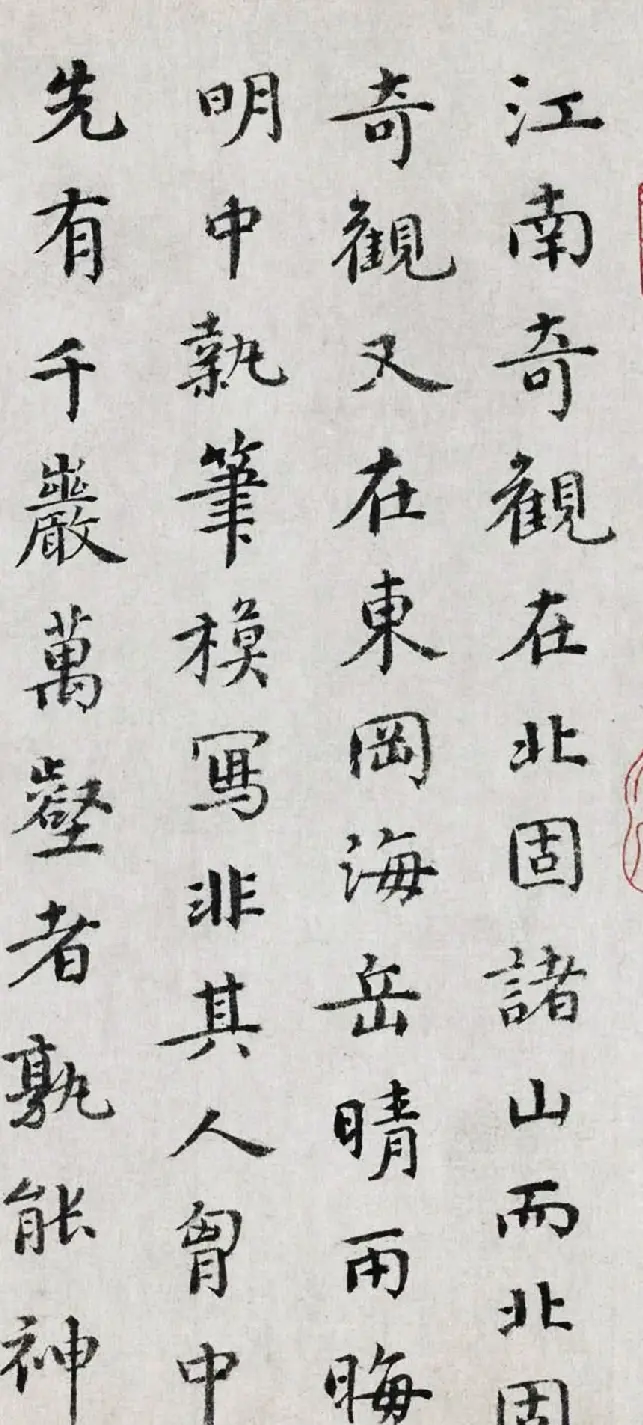 江南奇觀在北固諸山而北固
奇觀又在東岡海岳晴雨晦
明中執筆模寫非其人胷中
先有千巖萬壑者孰能神